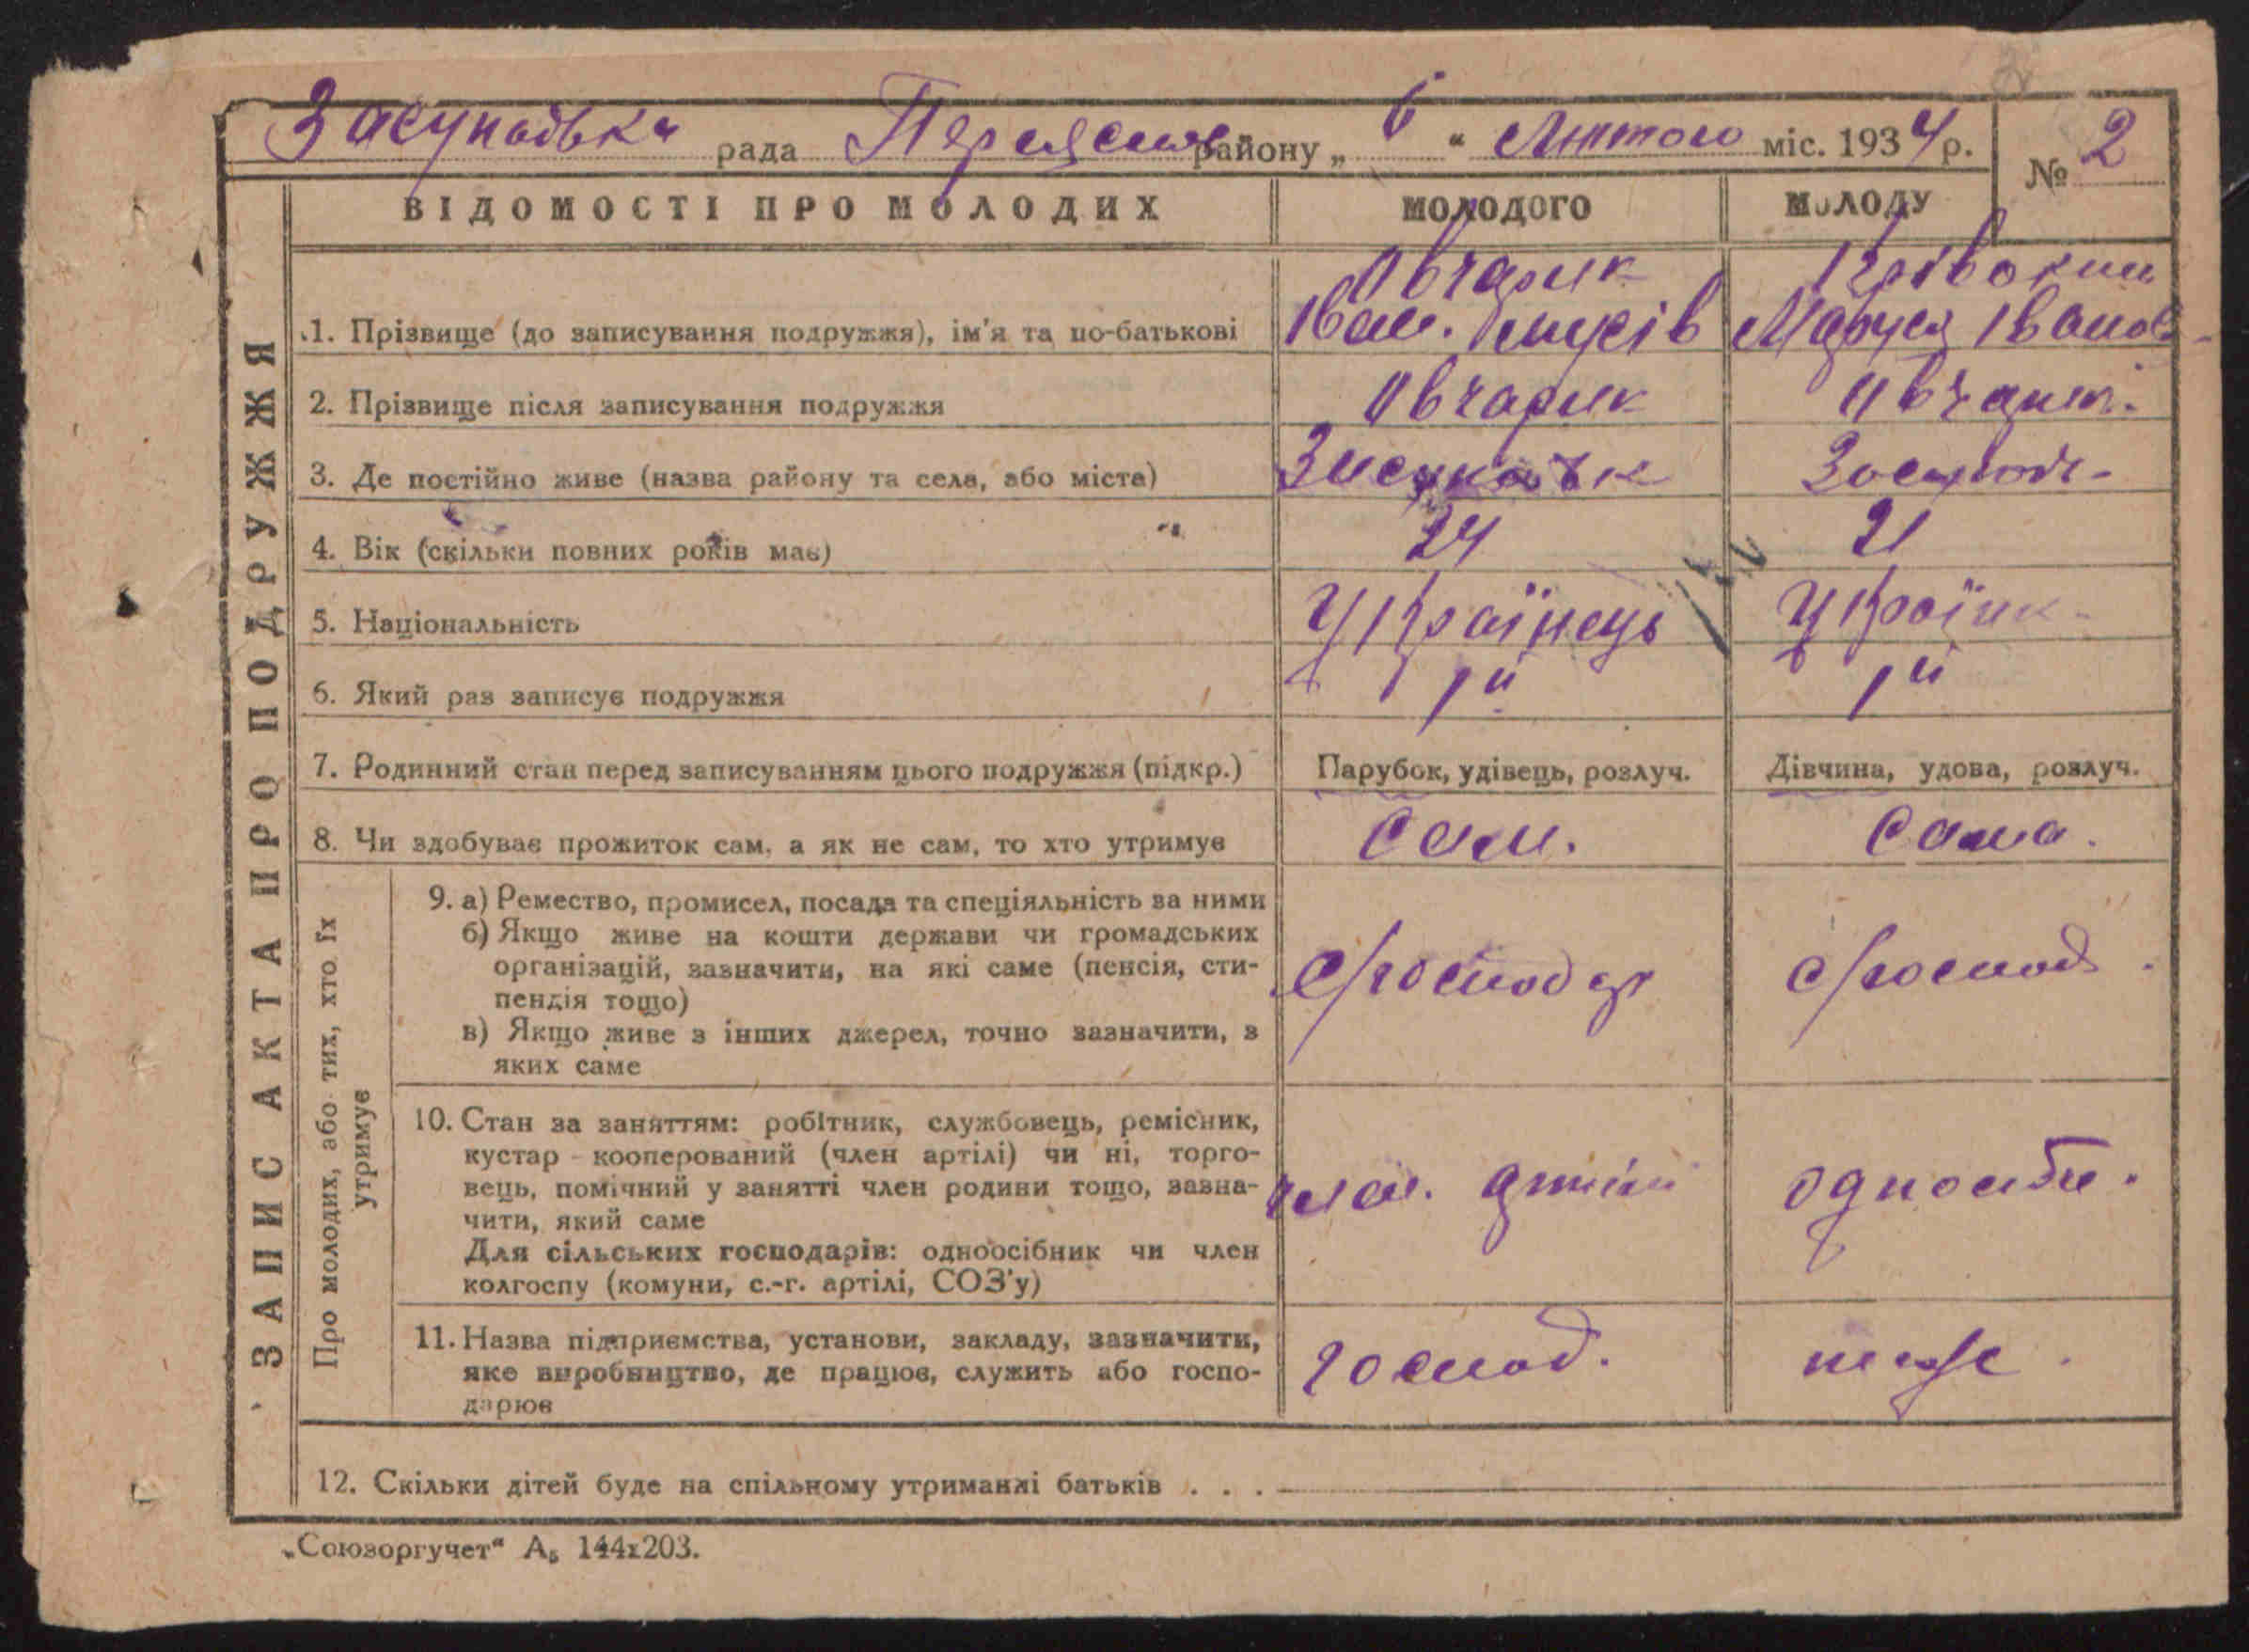 Засупоївка рада Переяслав району „ 6 “ Лютого міс. 1934 р. № 2
ВІДОМОСТІ ПРО МОЛОДИХ МОЛОДОГО МОЛОДУ
ЗАПИС АКТА ПРО ПОДРУЖЖЯ
Овчарик
1. Прізвище (до записування подружжя), ім'я та по-батькові Іван. Маруся Іванов
2. Прізвище після записування подружжя Овчарик Овчарик.
3. Де постійно живе (назва району та села, або міста)
4. Вік (скільки повних років має) 24 21
5. Національність Українець Українк-
6. Який раз записує подружжя 1й 1й
7. Родинний стан перед записуванням цього подружжя (підкр.) Парубок, удівець, розлуч. Дівчина, удова, розлуч.
8. Чи здобуває прожиток сам, а як не сам, то хто утримує Сам. Сама.
Про молодих, або тих, хто їх
утримує
9. а) Ремество, промисел, посада та спеціяльність за ними
б) Якщо живе на кошти держави чи громадських
організацій, зазначити, на які саме (пенсія, сти-
пендія тощо)
в) Якщо живе з інших джерел, точно зазначити, з
яких саме
10. Стан за заняттям: робітник, службовець, ремісник,
кустар - кооперований (член артілі) чи ні, торго-
вець, помічний у занятті член родини тощо, зазна-
чити, який саме
Для сільських господарів: одноосібник чи член
колгоспу (комуни, с.-г. артілі, СОЗ'у)
член. артілі
11. Назва підприємства, установи, закладу, зазначити,
яке виробництво, де працює, служить або госпо-
дарює
господ. теж.
12. Скільки дітей буде на спільному утриманні батьків . . .
„Союзоргучет“ А₅ 144х203.